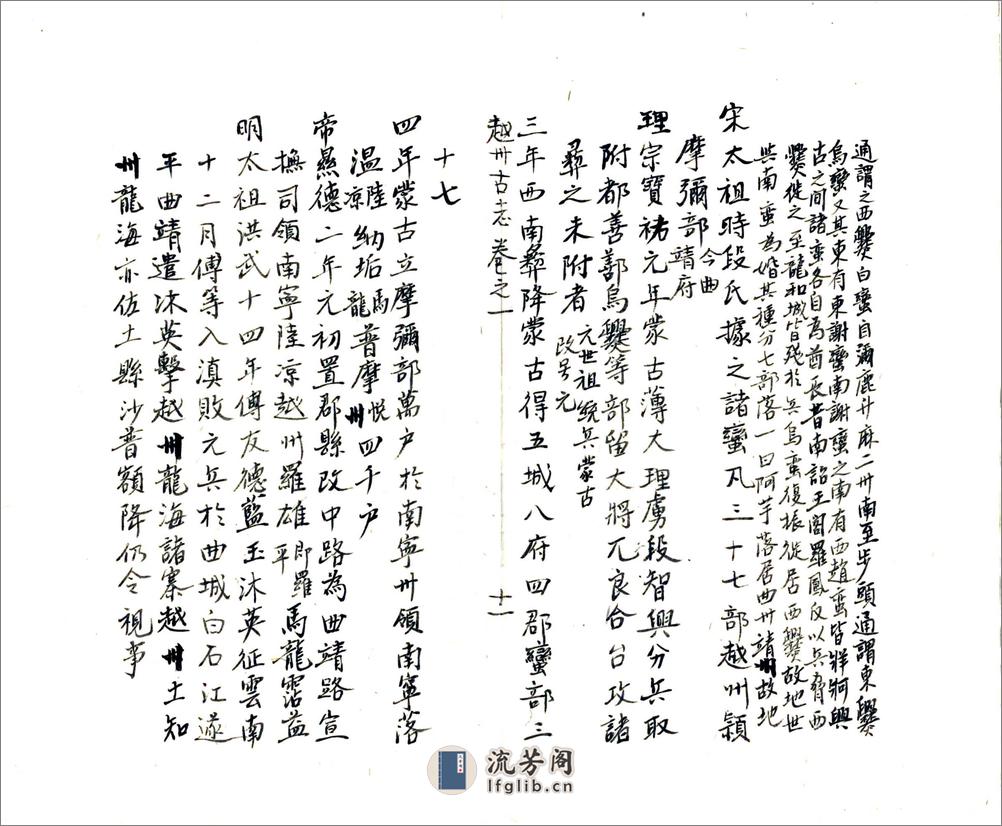 通謂之西爨白蠻自彌鹿升麻二州南至步頭通謂東爨
烏蠻又其東有東謝蠻南謝蠻之南有西趙蠻皆牂牁興
古之間諸蠻各自為酋長昔南詔王閣羅鳳反以兵脅西
爨徙之至龍和城皆殘於兵烏蠻復振徙居西爨故地世
與南蛮為婚其種分七部落一曰阿芋落居曲州靖州故地
宋太祖時段氏據之諸蠻凡三十七部越州隸
摩彌部今曲靖府
理宗寶祐元年蒙古薄大理虜段智興分兵取
附都善鄯烏爨等部留大將兀良合台攻諸
彜之未附者元世祖統兵蒙古改号元
三年西南彜降蒙古得五城八府四郡蠻部三
越州古志卷之一 十一
十七
四年蒙古立摩彌部萬户於南寧州領南寧落
温陸凉納垢馬龍普摩越州四千户
帝㬎德二年元初置郡縣改中路為曲靖路宣
撫司領南寧陸凉越州羅雄即羅平馬龍霑益
明太祖洪武十四年傅友德藍玉沐英征雲南
十二月傅等入滇敗元兵於曲城白石江遂
平曲靖遣沐英擊越州龍海諸寨越州土知
州龍海亦佐土縣沙普額降仍令視事
流芳阁
lfglib.cn